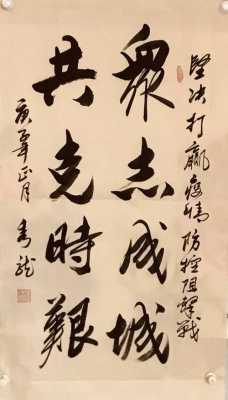 堅决打贏疫情防控阻擊戰
衆志成城
共克時艱
庚子年正月